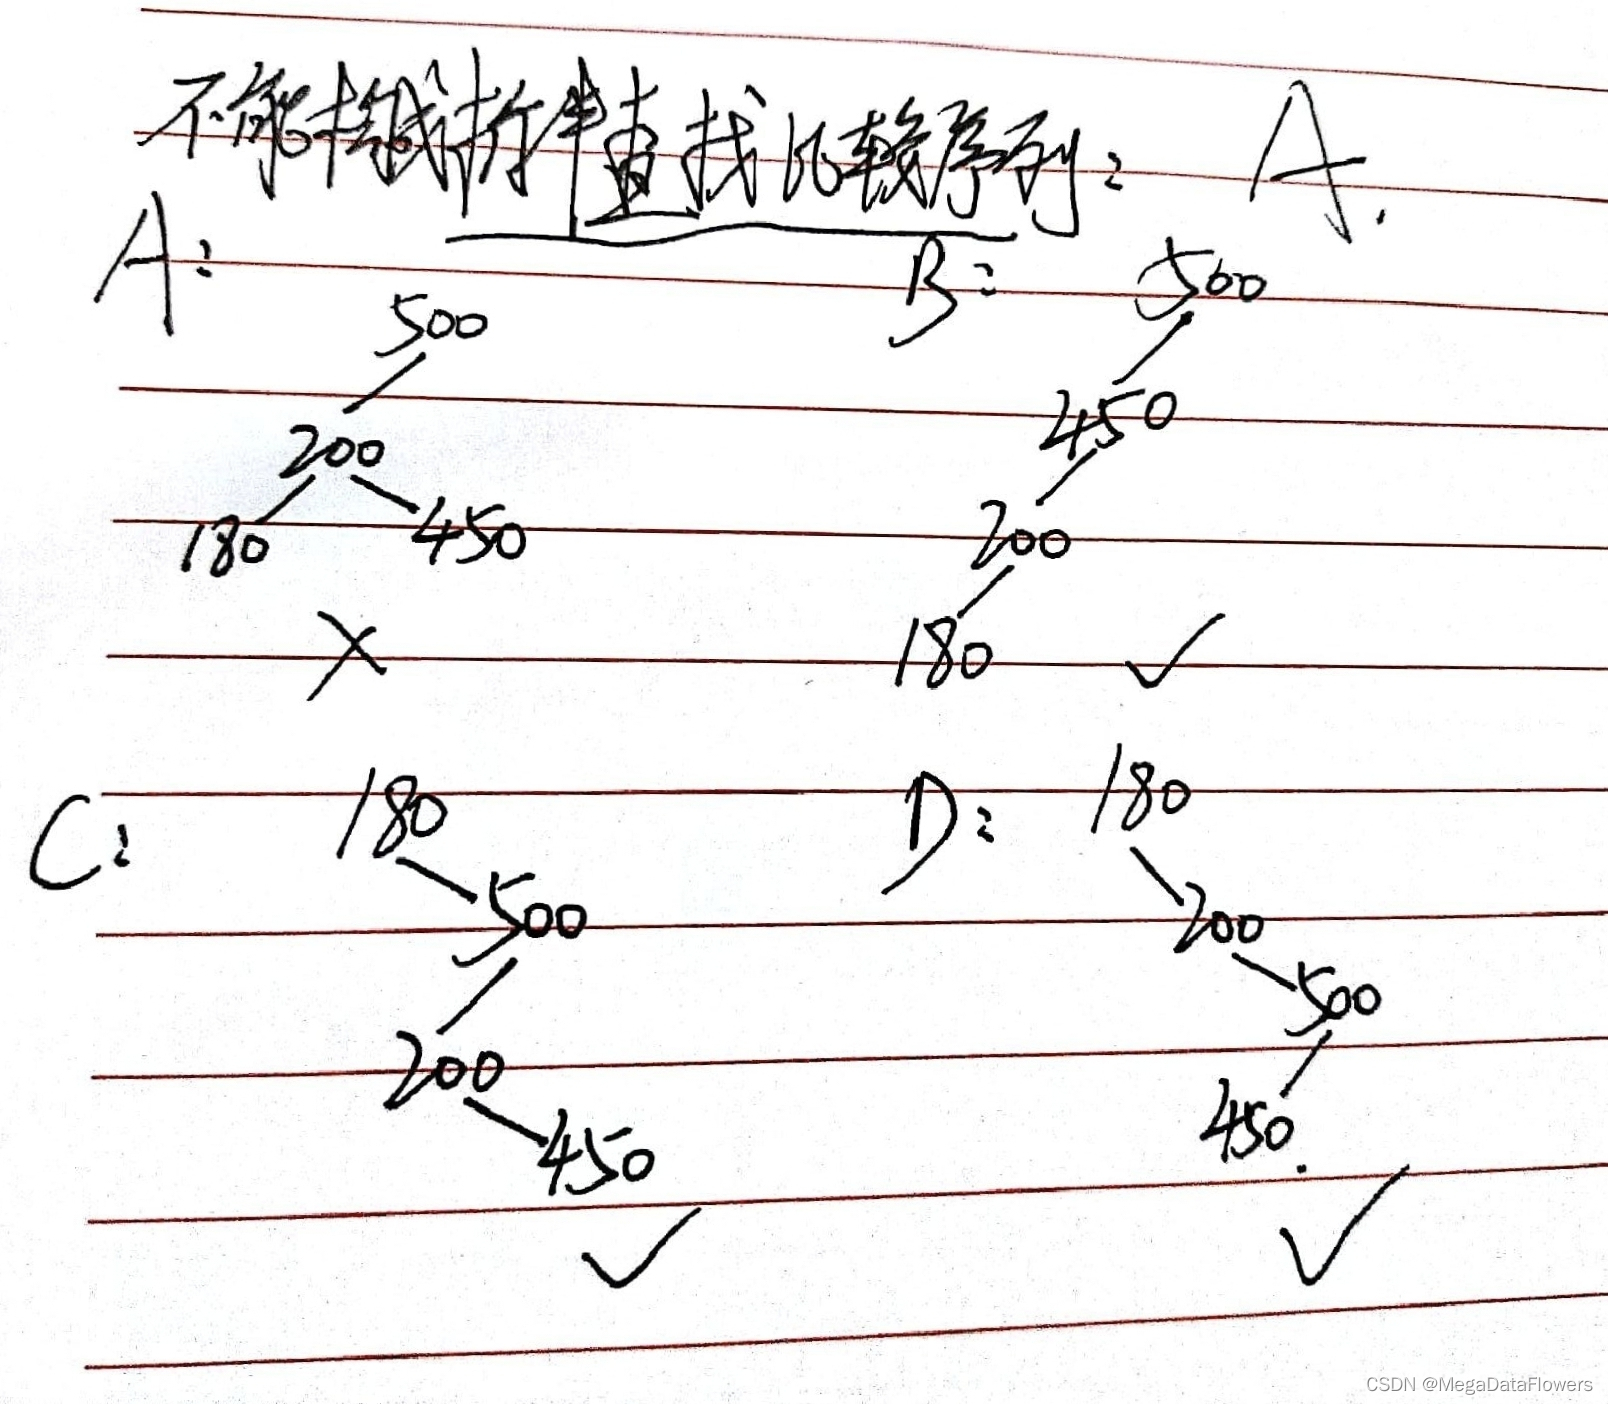 不能构成折半查找比较序列: A.
A: B:
500 500
200 450
180 450 200
180
C: D:
180 180
500 200
200 500
450 450
CSDN @MegaDataFlowers